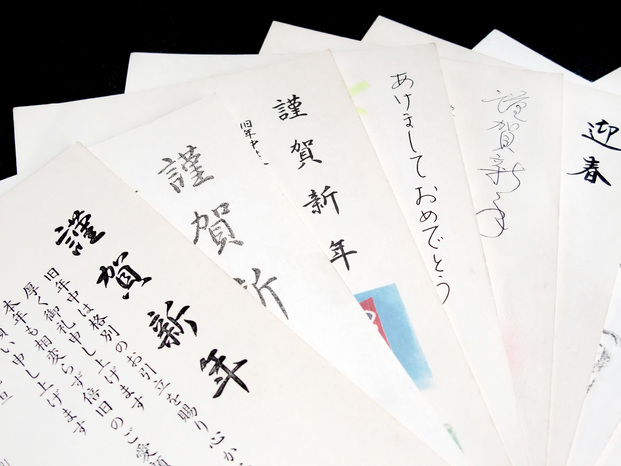 謹賀新年
旧年中は格別のお引立を賜り心か
厚く御礼申し上げます
本年も相変らず倍旧のご愛顧
願い申し上げます
旦
謹賀新
謹賀新年
旧年中
あけましておめでとう
謹賀新年
迎春